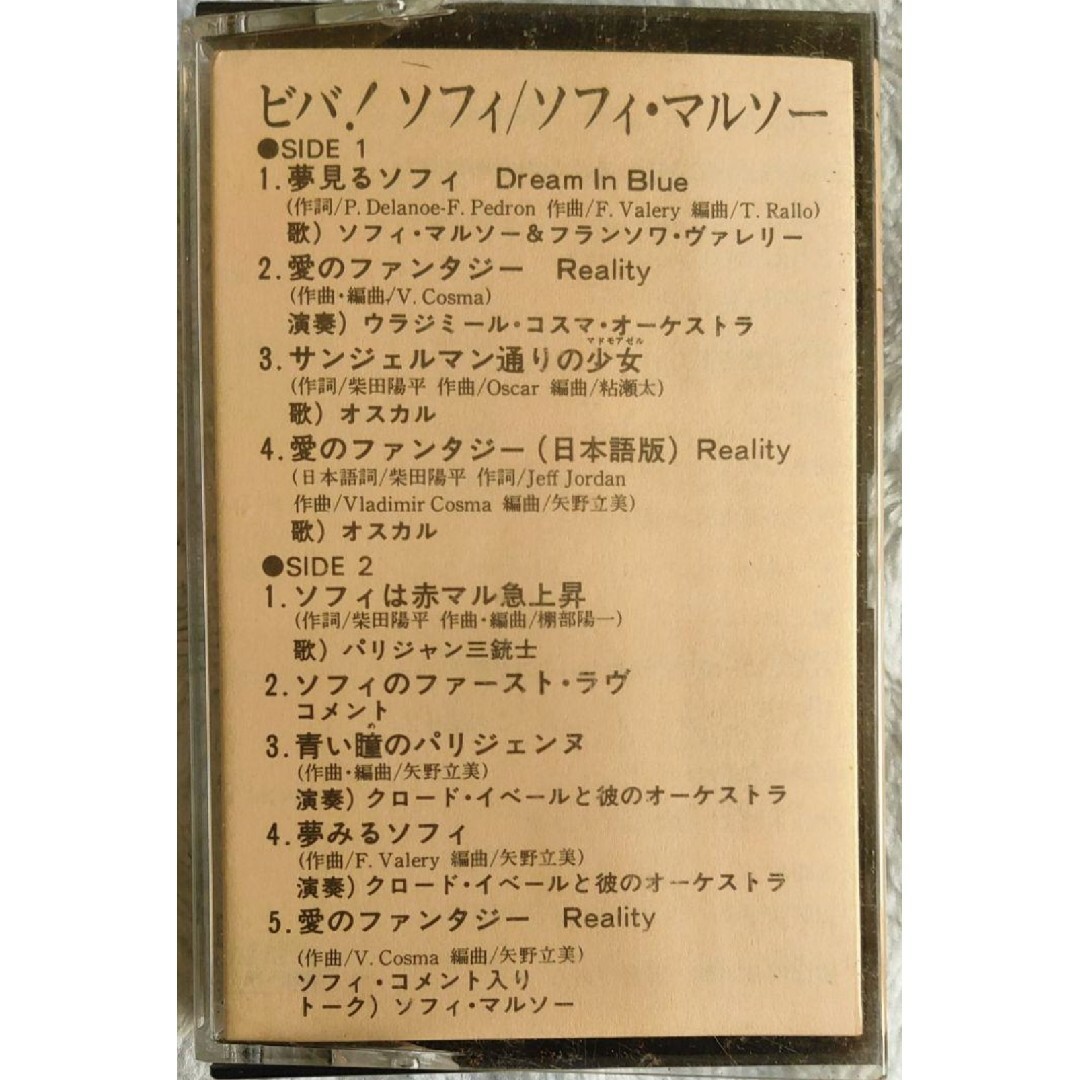 ビバ! ソフィ/ソフィ・マルソー
●SIDE 1
1. 夢見るソフィ Dream In Blue
(作詞/P. Delanoe-F. Pedron 作曲/F. Valery 編曲/T. Rallo)
歌) ソフィ・マルソー&フランソワ・ヴァレリー
2. 愛のファンタジー Reality
(作曲・編曲/V. Cosma)
演奏) ウラジミール・コスマ・オーケストラ
マドモアゼル
3. サンジェルマン通りの少女
(作詞/柴田陽平 作曲/Oscar 編曲/粘瀬太)
歌) オスカル
4. 愛のファンタジー (日本語版) Reality
(日本語詞/柴田陽平 作詞/Jeff Jordan
作曲/Vladimir Cosma 編曲/矢野立美)
歌) オスカル
●SIDE 2
1. ソフィは赤マル急上昇
(作詞/柴田陽平 作曲・編曲/棚部陽一)
歌) パリジャン三銃士
2. ソフィのファースト・ラヴ
コメント
め
3. 青い瞳のパリジェンヌ
(作曲・編曲/矢野立美)
演奏) クロード・イベールと彼のオーケストラ
4. 夢みるソフィ
(作曲/F. Valery 編曲/矢野立美)
演奏) クロード・イベールと彼のオーケストラ
5. 愛のファンタジー Reality
(作曲/V. Cosma 編曲/矢野立美)
ソフィ・コメント入り
トーク) ソフィ・マルソー